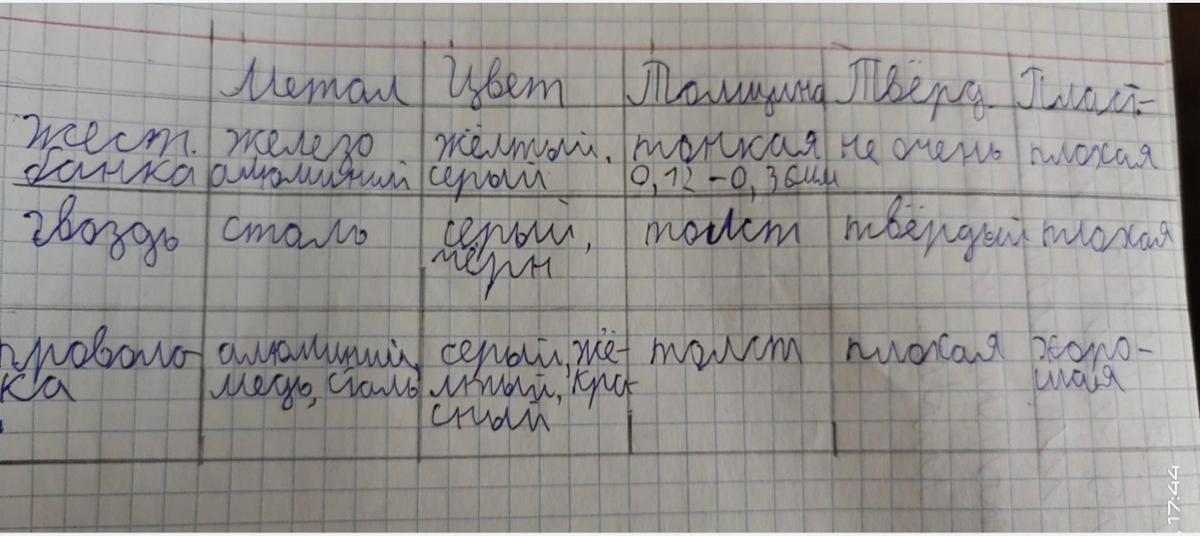 Метал Цвет Толщина Твёрд. Пласт-
жест. железо жёлтый, тонкая не очень плохая
банка алюминий серый 0,12-0,36мм
гвоздь сталь серый, толст твёрдый плохая
чёрн
проволо- алюминий, серый, жё- толст плохая хоро-
ка медь, сталь лтый, кра- шая
сный
17:44